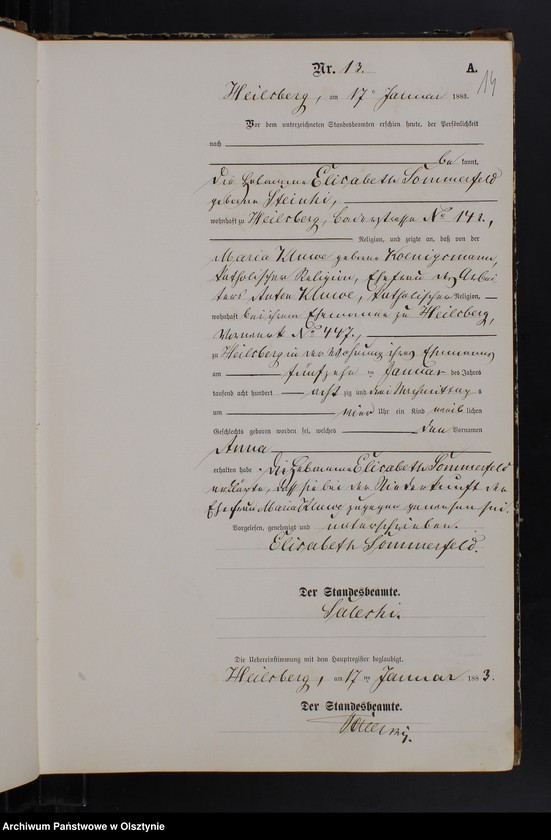 Nr. 13.
A.
14
Heilsberg, am 17 Januar 1883.
Vor dem unterzeichneten Standesbeamten erschien heute, der Persönlichkeit
nach
be kannt,
die Hebamme Elisabeth Sommerfeld
geborene Steinki,
wohnhaft zu Heilsberg, Baderstrasse No 141,
Religion, und zeigte an, daß von der
Maria Kluwe geborne Koenigsmann,
katholischer Religion, Ehefrau des Arbei
ters Anton Kluwe, katholischer Religion,
wohnhaft bei ihrem Ehemanne zu Heilsberg,
Vorwerk No 447.,
zu Heilsberg in der Wohnung ihres Ehemannes
am fünfzehn ten Januar des Jahres
tausend acht hundert acht zig und drei Nachmittags
um vier Uhr ein Kind weib lichen
Geschlechts geboren worden sei, welches den Vornamen
Anna
erhalten habe. Die Hebamme Elisabeth Sommerfeld
erklärte, daß sie bei der Niederkunft der
Ehefrau Maria Kluwe zugegen gewesen sei.
Vorgelesen, genehmigt und unterschrieben.
Elisabeth Sommerfeld.
Der Standesbeamte.
Die Uebereinstimmung mit dem Hauptregister beglaubigt.
Heilsberg, am 17 ten Januar 1883.
Der Standesbeamte.
Archiwum Państwowe w Olsztynie